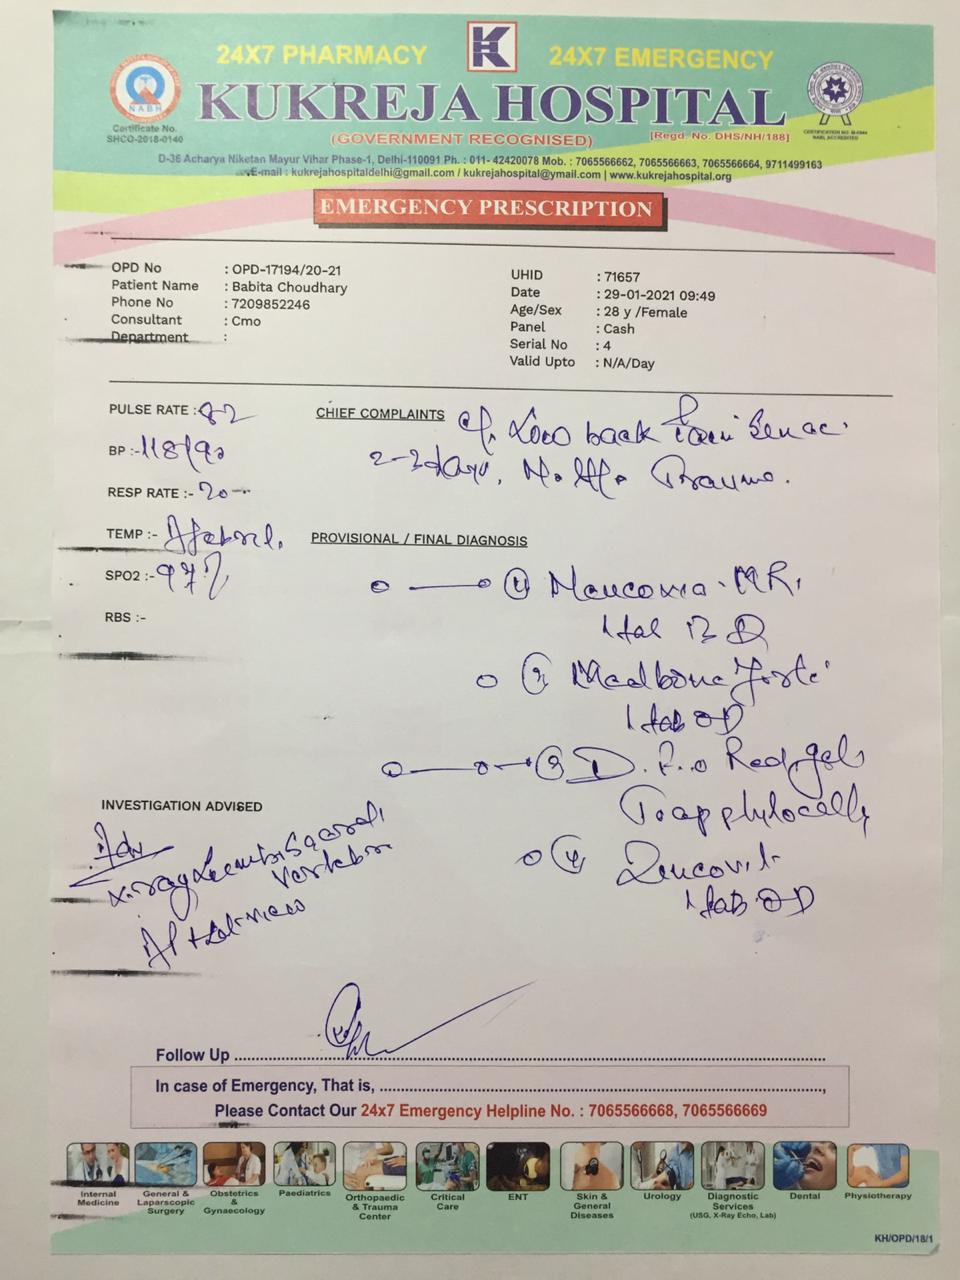 24X7 PHARMACY
24X7 EMERGENCY
NABH
Certificate No.
SHCO-2018-0140
KUKREJA HOSPITAL
(GOVERNMENT RECOGNISED)
[Regd. No. DHS/NH/188]
D-36 Acharya Niketan Mayur Vihar Phase-1, Delhi-110091 Ph. : 011- 42420078 Mob. : 7065566662, 7065566663, 7065566664, 9711499163
E-mail : kukrejahospitaldelhi@gmail.com / kukrejahospital@ymail.com | www.kukrejahospital.org
EMERGENCY PRESCRIPTION
OPD No : OPD-17194/20-21
Patient Name : Babita Choudhary
Phone No : 7209852246
Consultant : Cmo
Department :
UHID : 71657
Date : 29-01-2021 09:49
Age/Sex : 28 y /Female
Panel : Cash
Serial No : 4
Valid Upto : N/A/Day
PULSE RATE :- 82
BP :- 118/90
RESP RATE :- 20
TEMP :- Afebril.
SPO2 :- 97%
RBS :-
CHIEF COMPLAINTS
Low back Pain
2-3 days,
PROVISIONAL / FINAL DIAGNOSIS
MR,
1 tab
Forte
1 tab OD
D. Red gel
To apply locally
1 tab OD
INVESTIGATION ADVISED
Adv
X-ray
AP + Lat view
Follow Up
In case of Emergency, That is,
Please Contact Our 24x7 Emergency Helpline No. : 7065566668, 7065566669
Internal
Medicine
General &
Laparscopic
Surgery
Obstetrics
&
Gynaecology
Paediatrics
Orthopaedic
& Trauma
Center
Critical
Care
ENT
Skin &
General
Diseases
Urology
Diagnostic
Services
(USG, X-Ray Echo, Lab)
Dental
Physiotherapy
KH/OPD/18/1